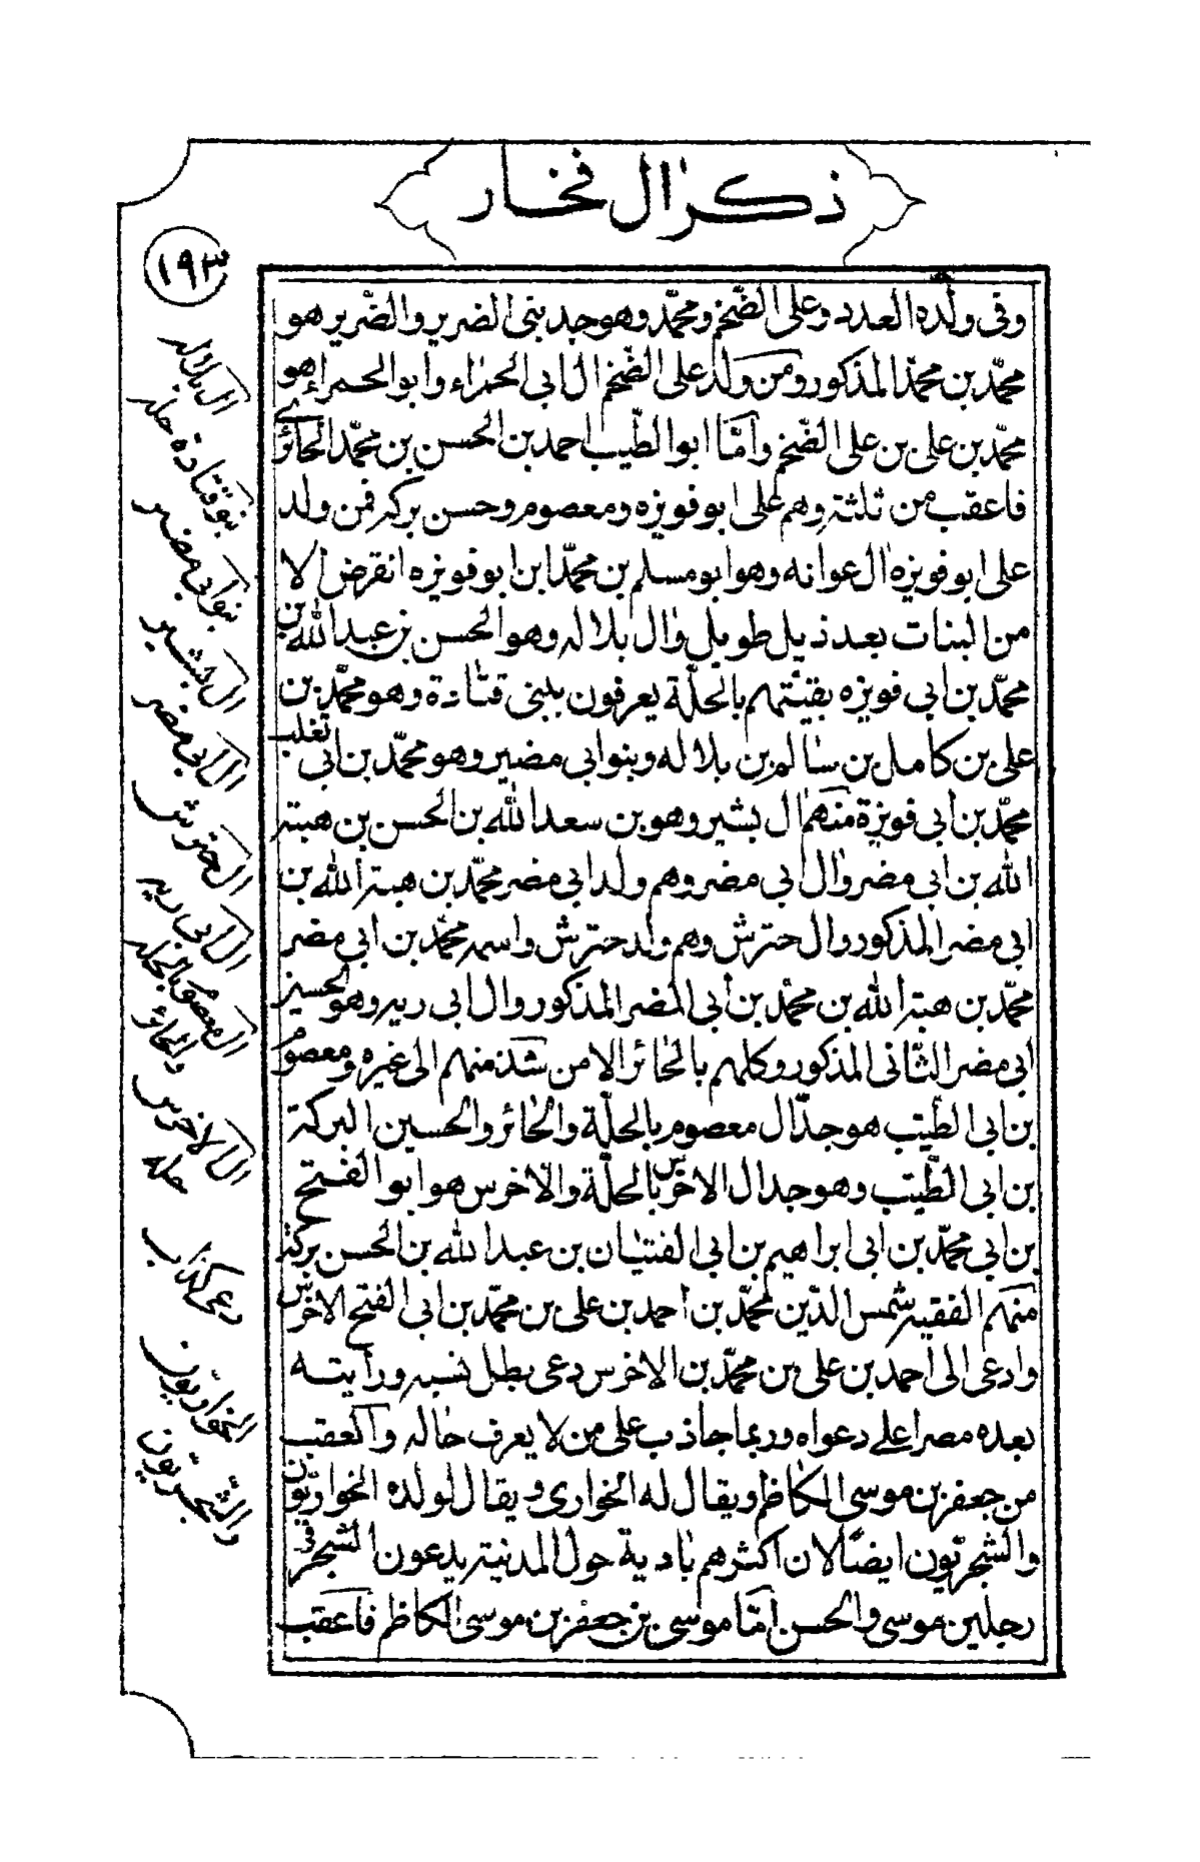 ذكر ال فخار
١٩٣
وفى ولده العدد وعلى الضّخم ومحمّد وهو جد بنى الضرير والضّرير هو
محمّد بن محمّد المذكور ومن ولد على الضّخم ال ابى الحمراء وابو الحمراء هو
محمّد بن على بن على الضّخم وامّا ابو الطّيب احمد بن الحسن بن محمّد الحائرى
فاعقب من ثلثة وهم على ابو فويزه ومعصوم وحسن بركه فمن ولد
على ابو فويزه ال عوانه وهو ابو مسلم بن محمّد ابن ابو فويزه انقرض الا
من البنات بعد ذيل طويل وال بلاله وهو الحسن بن عبد الله بن
محمّد بن ابى فويزه بقيتهم بالحلّة يعرفون ببنى قتادة وهو محمّد بن
على بن كامل بن سالم بن بلاله وبنو ابى مضير وهو محمّد بن ابى تغلب
محمّد بن ابى فويزة منهم ال بشير وهو بن سعد الله بن الحسن بن هبة
الله بن ابى مضر وال ابى مضر وهم ولد ابى مضر محمّد بن هبة الله بن
ابى مضر المذكور وال حترش وهم ولد حترش واسمه محمّد بن ابى مضر
محمّد بن هبة الله بن محمّد بن ابى المضر المذكور وال ابى ريه وهو الحسين بن
ابى مضر الثّانى المذكور وكلهم بالحائر الا من شذ منهم الى غيره ومعصوم
بن ابى الطّيب هو جدّ ال معصوم بالحلّة والحائر والحسين البركة
بن ابى الطّيب وهو جد ال الاخرس بالحلّة والاخرس هو ابو الفتح
بن ابى محمّد بن ابى ابراهيم بن ابى الفتيان بن عبد الله بن الحسن بركة
منهم الفقيه شمس الدّين محمّد بن احمد بن على بن محمّد بن ابى الفتح الاخرس
وادعى الى احمد بن على بن محمّد بن الاخرس دعى بطل نسبه ورأيته
بعده مصرا على دعواه وربما جاذب على من لا يعرف حاله والعقب
من جعفر بن موسى الكاظم ويقال له الخوارى ويقال لولده الخواريّون
والشّجريّون ايضًا لان اكثرهم بادية حول المدنية يدعون الشجر فى
رجلين موسى والحسن امّا موسى بن جعفر بن موسى الكاظم فاعقب
ال بلاله
بنو قتادة حله
بنو ابى مضير
ال بشير
ال ابى مضر
ال حترش
ال ابى ريه
ال معصوم بالحله
والحائر
ال الاخرس
حله
دعى كذاب
الخواريّون
والشّجريّون